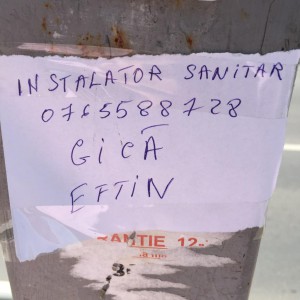 INSTALATOR SANITAR
0765588728
GICĂ
EFTIN
RANTIE 12-